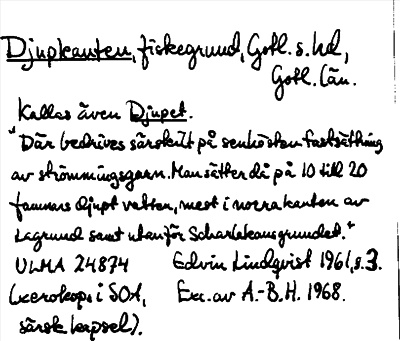 Djupkanten, fiskegrund, Gotl. s. hd,
Gotl. län.
Kallas även Djupet.
"Där bedrives särskilt på senhösten fastsättning
av strömmingsgarn. Man sätter då på 10 till 20
famnars djupt vatten, mest i norra kanten av
Lagrund samt utanför Scharlakansgrundet."
ULMA 24874 Edvin Lindqvist 1961, s. 3.
(xerokop. i SOA, Exc. av A.-B. H. 1968.
särsk. kapsel).